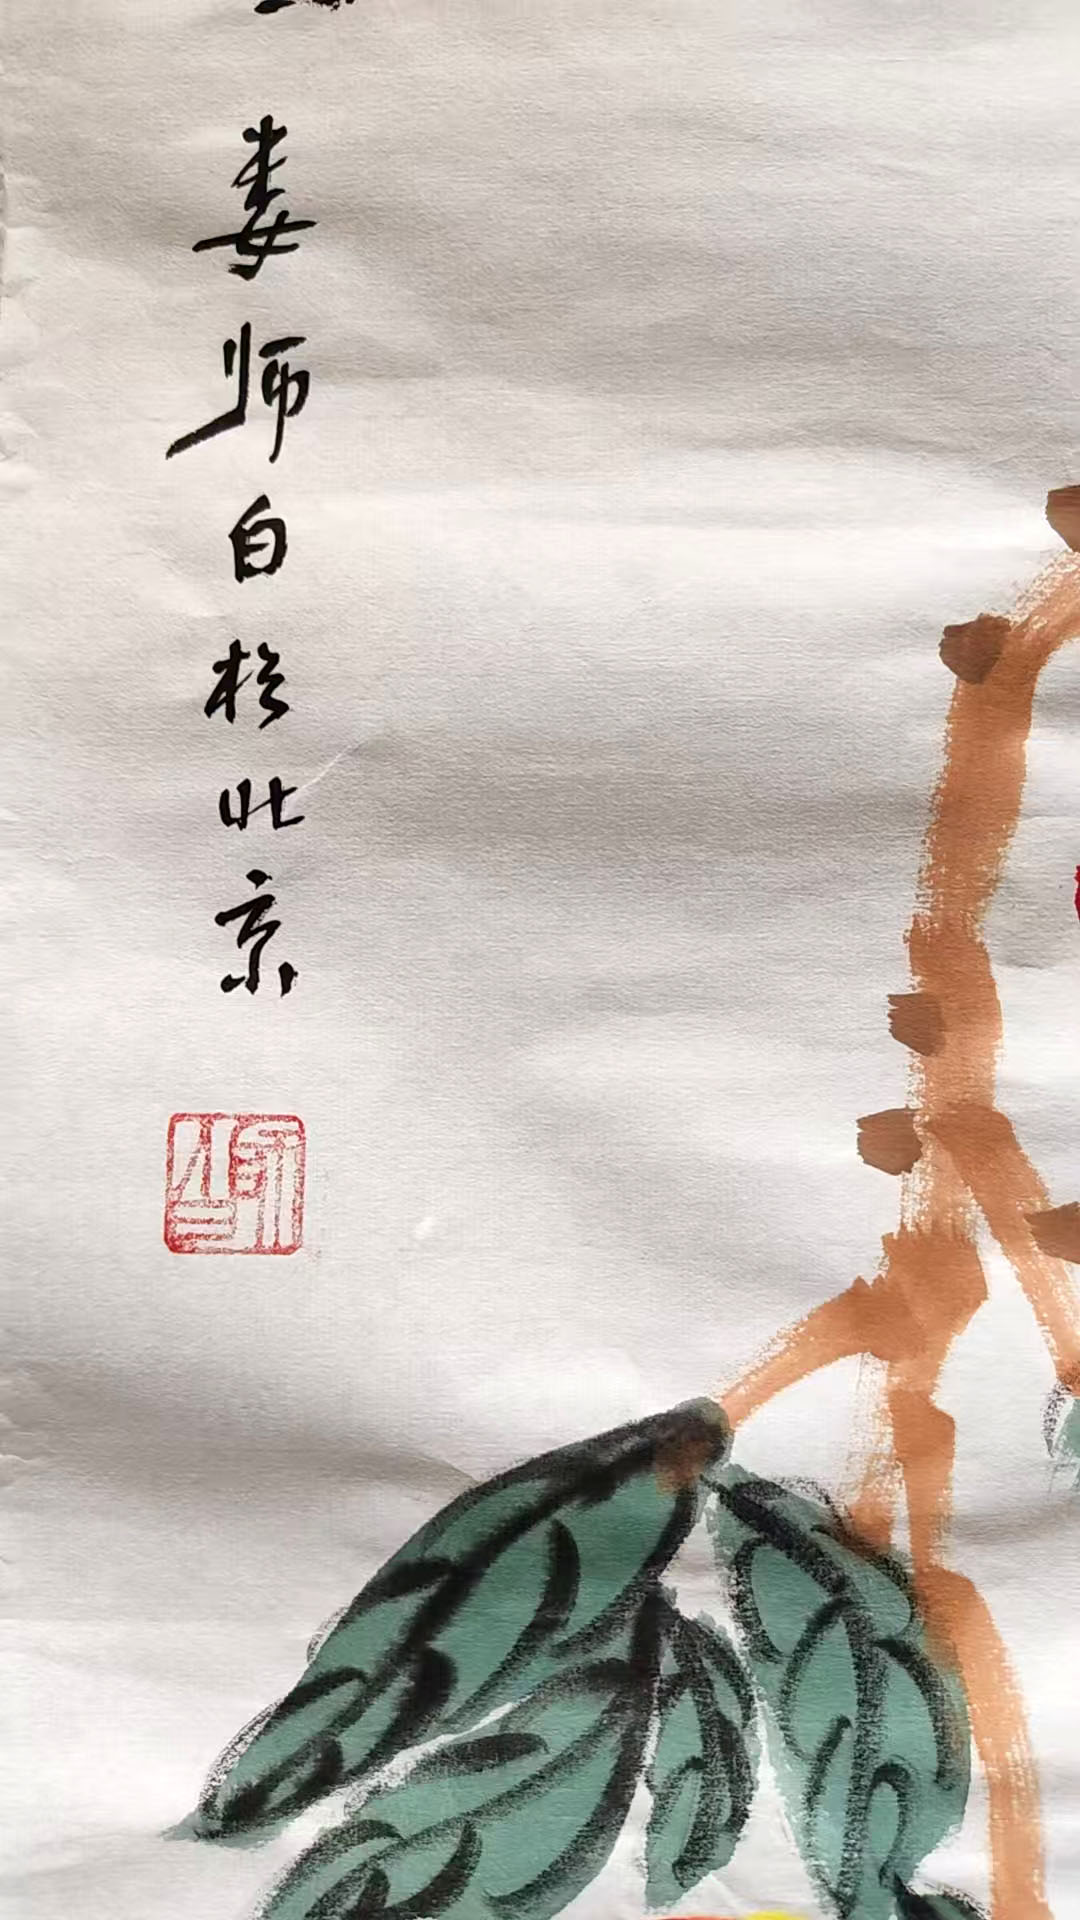 娄师白於北京